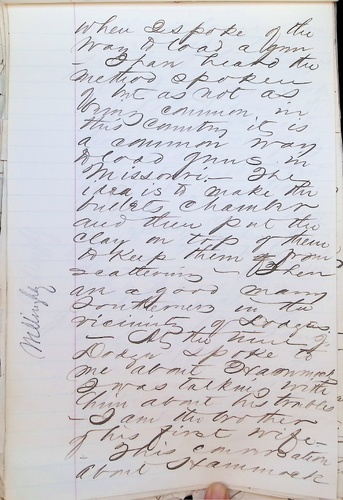 when I spoke of the
way to load a gun
- I have heard the
method spoken
of but as not as
being common in
this country it is
a common way
to load guns in
Missouri - The
idea is to make the
bullets chamber
and then put the
clay on top of them
to keep them from
scattering -
are a good many
Southerners in the
vicinity of Dodges
- At the time
Dodge spoke to
me about Hammock
I was talking with
him about his troubles
- I am the brother
of his first wife -
This conversation
about Hammock